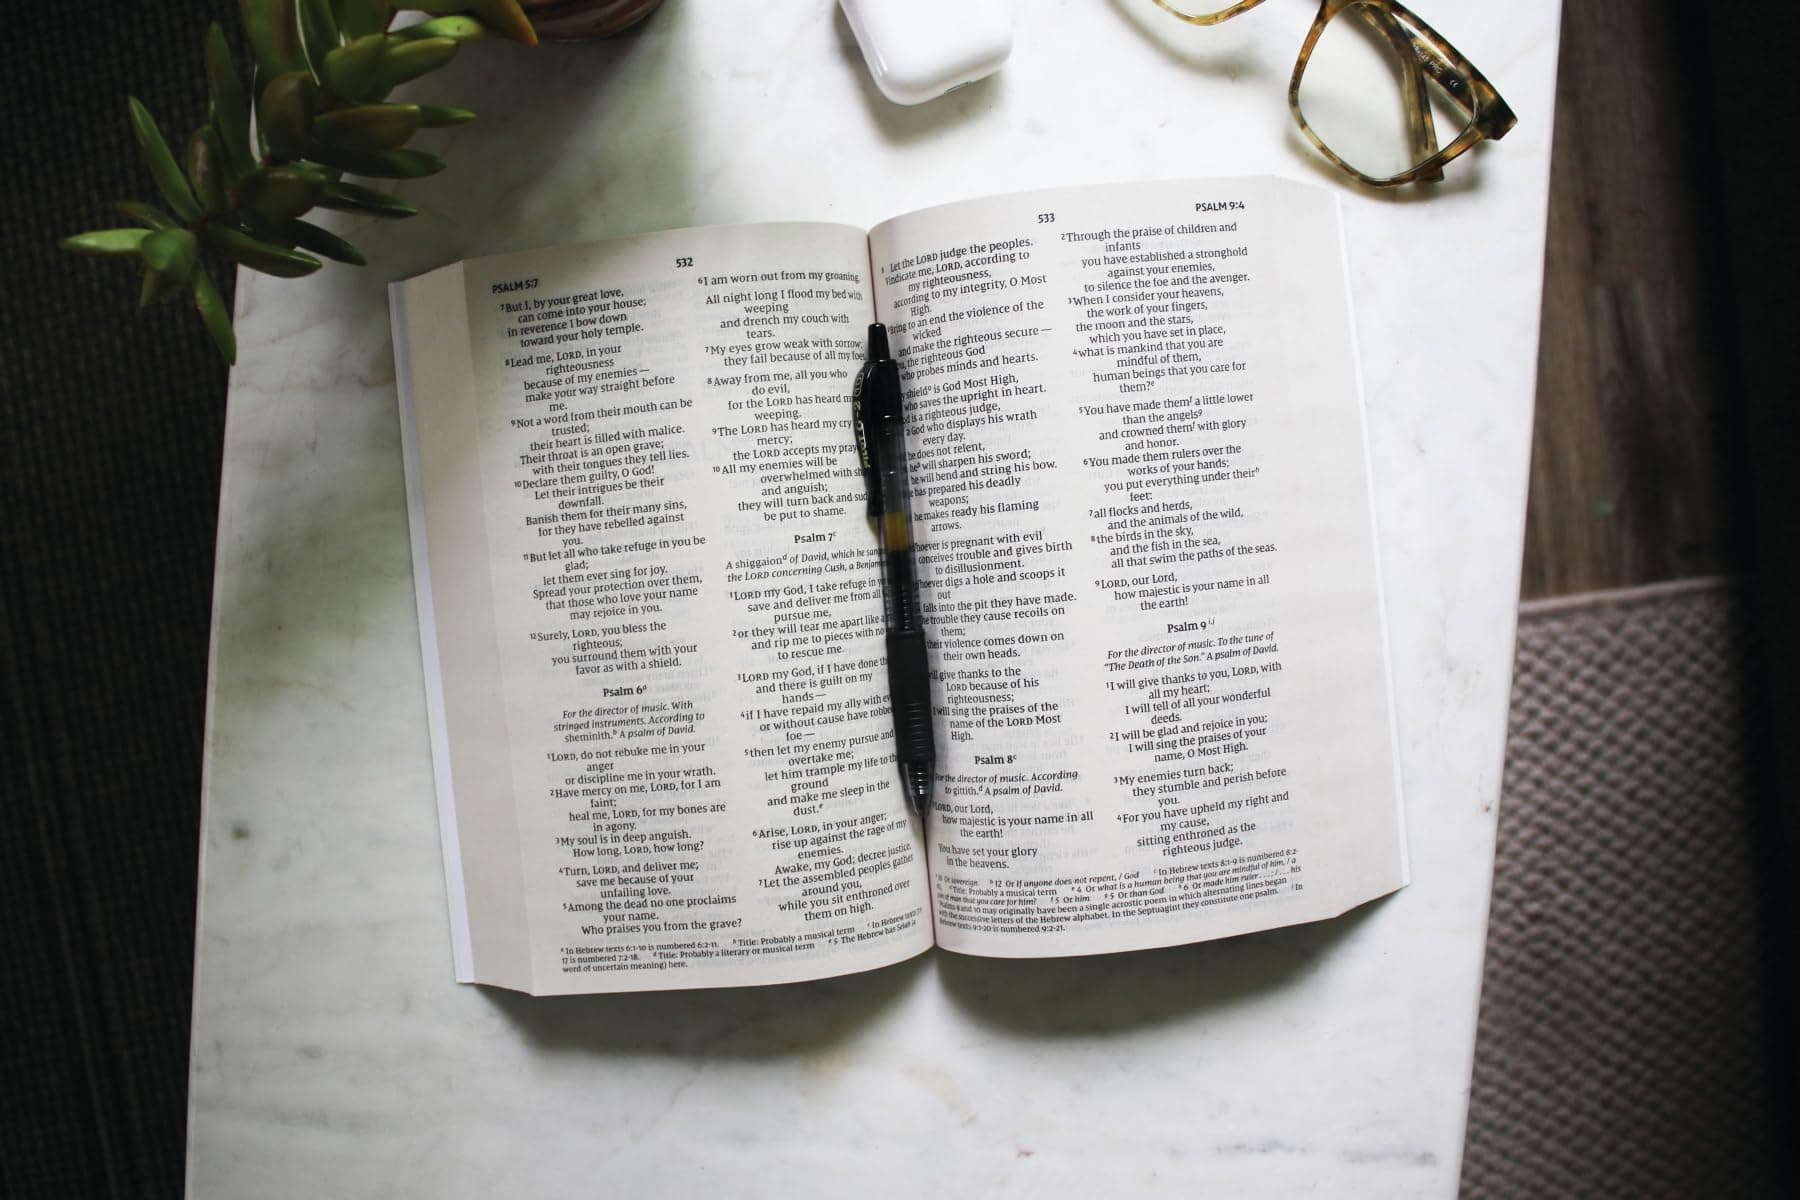 PSALM 5:7
532
⁷But I, by your great love,
can come into your house;
in reverence I bow down
toward your holy temple.
⁸Lead me, LORD, in your
righteousness
because of my enemies —
make your way straight before
me.
⁹Not a word from their mouth can be
trusted;
their heart is filled with malice.
Their throat is an open grave;
with their tongues they tell lies.
¹⁰Declare them guilty, O God!
Let their intrigues be their
downfall.
Banish them for their many sins,
for they have rebelled against
you.
¹¹But let all who take refuge in you be
glad;
let them ever sing for joy.
Spread your protection over them,
that those who love your name
may rejoice in you.
¹²Surely, LORD, you bless the
righteous;
you surround them with your
favor as with a shield.
Psalm 6ᵃ
For the director of music. With
stringed instruments. According to
sheminith.ᵇ A psalm of David.
¹LORD, do not rebuke me in your
anger
or discipline me in your wrath.
²Have mercy on me, LORD, for I am
faint;
heal me, LORD, for my bones are
in agony.
³My soul is in deep anguish.
How long, LORD, how long?
⁴Turn, LORD, and deliver me;
save me because of your
unfailing love.
⁵Among the dead no one proclaims
your name.
Who praises you from the grave?
⁶I am worn out from my groaning.
All night long I flood my bed with
weeping
and drench my couch with
tears.
⁷My eyes grow weak with sorrow;
they fail because of all my foes.
⁸Away from me, all you who
do evil,
for the LORD has heard m
weeping.
⁹The LORD has heard my cry
mercy;
the LORD accepts my pray
¹⁰All my enemies will be
overwhelmed with sh
and anguish;
they will turn back and sud
be put to shame.
Psalm 7ᶜ
A shiggaionᵈ of David, which he sang
the LORD concerning Cush, a Benjam
¹LORD my God, I take refuge in y
save and deliver me from all
pursue me,
²or they will tear me apart like a
and rip me to pieces with no
to rescue me.
³LORD my God, if I have done th
and there is guilt on my
hands —
⁴if I have repaid my ally with ev
or without cause have robbe
foe —
⁵then let my enemy pursue and
overtake me;
let him trample my life to the
ground
and make me sleep in the
dust.ᵉ
⁶Arise, LORD, in your anger;
rise up against the rage of my
enemies.
Awake, my God; decree justice.
⁷Let the assembled peoples gather
around you,
while you sit enthroned over
them on high.
ᵃ In Hebrew texts 6:1-10 is numbered 6:2-11. ᵇ Title: Probably a musical term ᶜ In Hebrew texts 7:1-
17 is numbered 7:2-18. ᵈ Title: Probably a literary or musical term ᵉ 5 The Hebrew has Selah (a
word of uncertain meaning) here.
533
PSALM 9:4
⁸ Let the LORD judge the peoples.
Vindicate me, LORD, according to
my righteousness,
according to my integrity, O Most
High.
⁹Bring to an end the violence of the
wicked
and make the righteous secure —
the righteous God
who probes minds and hearts.
shieldᵃ is God Most High,
who saves the upright in heart.
is a righteous judge,
a God who displays his wrath
every day.
he does not relent,
heᵇ will sharpen his sword;
he will bend and string his bow.
has prepared his deadly
weapons;
he makes ready his flaming
arrows.
Whoever is pregnant with evil
conceives trouble and gives birth
to disillusionment.
Whoever digs a hole and scoops it
out
falls into the pit they have made.
The trouble they cause recoils on
them;
their violence comes down on
their own heads.
will give thanks to the
LORD because of his
righteousness;
I will sing the praises of the
name of the LORD Most
High.
Psalm 8ᶜ
For the director of music. According
to gittith.ᵈ A psalm of David.
¹LORD, our Lord,
how majestic is your name in all
the earth!
You have set your glory
in the heavens.
²Through the praise of children and
infants
you have established a stronghold
against your enemies,
to silence the foe and the avenger.
³When I consider your heavens,
the work of your fingers,
the moon and the stars,
which you have set in place,
⁴what is mankind that you are
mindful of them,
human beings that you care for
them?ᵉ
⁵You have made themᶠ a little lower
than the angelsᵍ
and crowned themᶠ with glory
and honor.
⁶You made them rulers over the
works of your hands;
you put everything under theirʰ
feet:
⁷all flocks and herds,
and the animals of the wild,
⁸the birds in the sky,
and the fish in the sea,
all that swim the paths of the seas.
⁹LORD, our Lord,
how majestic is your name in all
the earth!
Psalm 9ⁱ,ʲ
For the director of music. To the tune of
“The Death of the Son.” A psalm of David.
¹I will give thanks to you, LORD, with
all my heart;
I will tell of all your wonderful
deeds.
²I will be glad and rejoice in you;
I will sing the praises of your
name, O Most High.
³My enemies turn back;
they stumble and perish before
you.
⁴For you have upheld my right and
my cause,
sitting enthroned as the
righteous judge.
ᵃ 10 Or sovereign ᵇ 12 Or If anyone does not repent, / God ᶜ In Hebrew texts 8:1-9 is numbered 8:2-
ᵈ Title: Probably a musical term ᵉ 4 Or what is a human being that you are mindful of him, / a
son of man that you care for him? ᶠ 5 Or him ᵍ 5 Or than God ʰ 6 Or made him ruler . . . ; / . . . his
Psalms 9 and 10 may originally have been a single acrostic poem in which alternating lines began
with the successive letters of the Hebrew alphabet. In the Septuagint they constitute one psalm. ʲ In
Hebrew texts 9:1-20 is numbered 9:2-21.